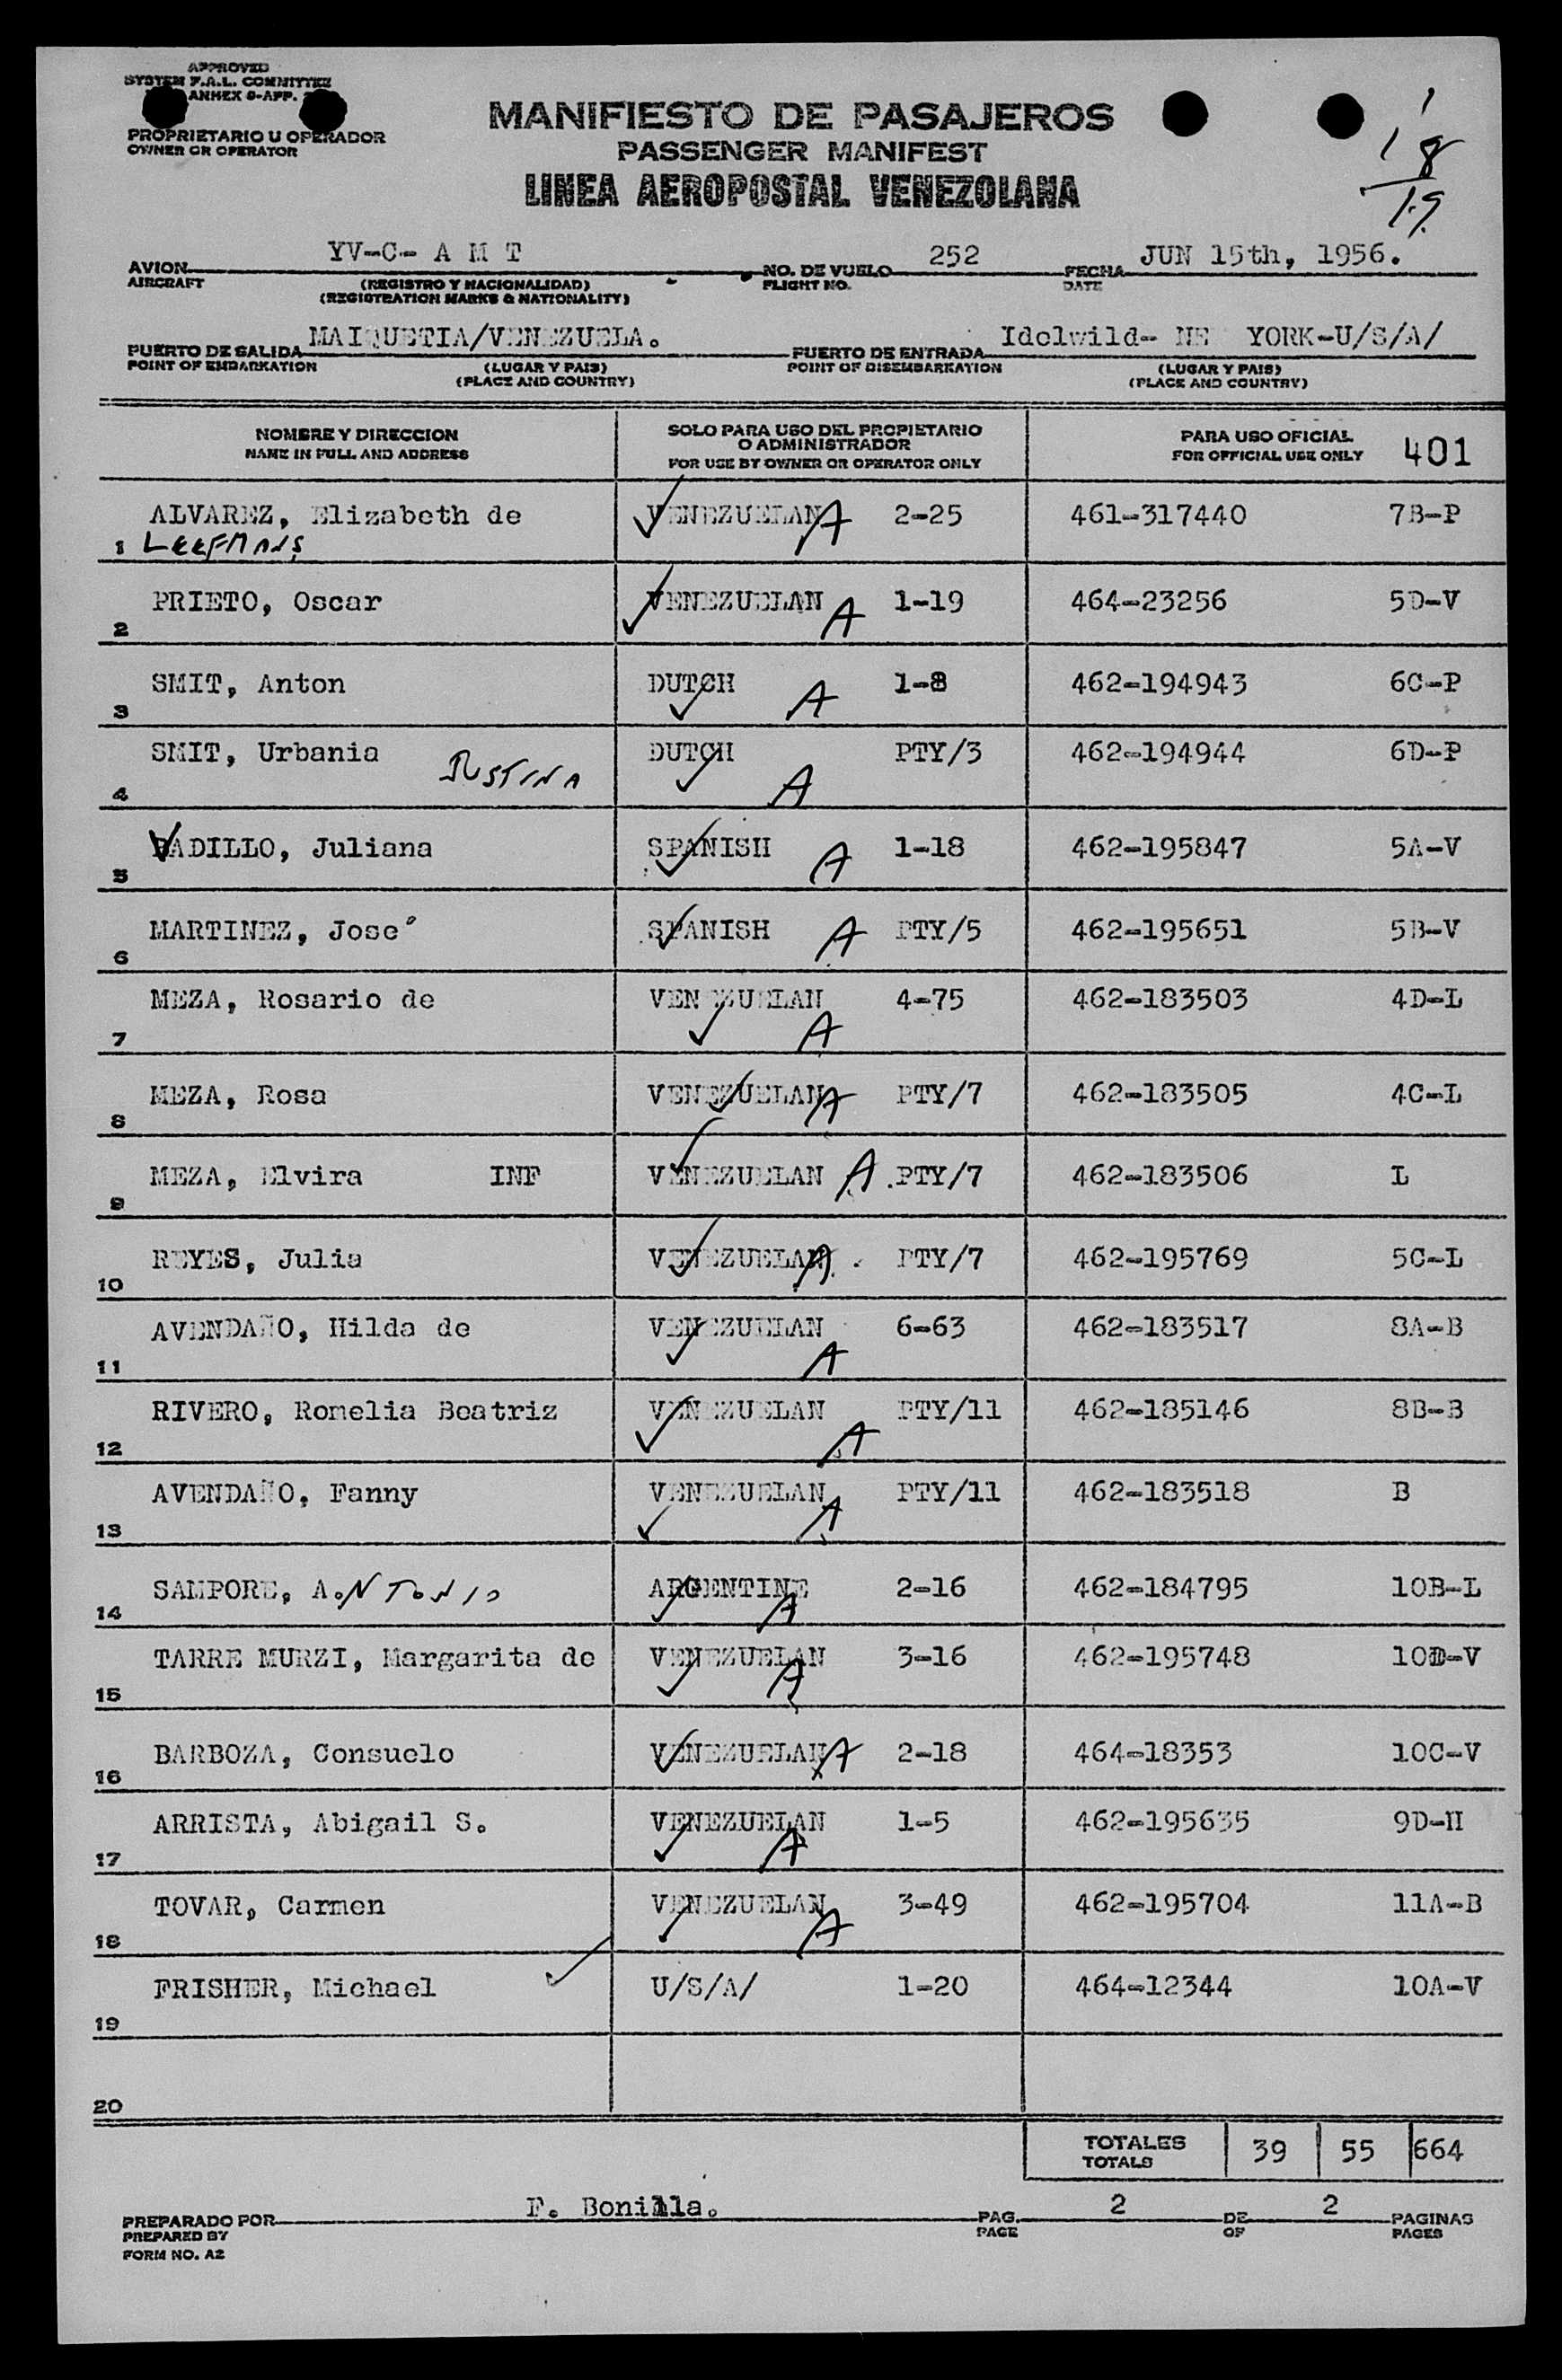 APPROVED
SYSTEM F.A.L. COMMITTEE
ANNEX 9-APP.
PROPRIETARIO U OPERADOR
OWNER OR OPERATOR
MANIFIESTO DE PASAJEROS
PASSENGER MANIFEST
LINEA AEROPOSTAL VENEZOLANA
1
18
19
AVION YV-C- A M T NO. DE VUELO 252 FECHA JUN 15th, 1956.
AIRCRAFT (REGISTRO Y NACIONALIDAD) FLIGHT NO. DATE
(REGISTRATION MARKS & NATIONALITY)
PUERTO DE SALIDA MAIQUETIA/VENEZUELA. PUERTO DE ENTRADA Idelwild- NE YORK-U/S/A/
POINT OF EMBARKATION (LUGAR Y PAIS) POINT OF DISEMBARKATION (LUGAR Y PAIS)
(PLACE AND COUNTRY) (PLACE AND COUNTRY)
NOMBRE Y DIRECCION SOLO PARA USO DEL PROPIETARIO O ADMINISTRADOR PARA USO OFICIAL 401
NAME IN FULL AND ADDRESS FOR USE BY OWNER OR OPERATOR ONLY FOR OFFICIAL USE ONLY
ALVAREZ, Elizabeth de VENEZUELAN A 2-25 461-317440 7B-P
1 LEEFMANS
PRIETO, Oscar VENEZUELAN A 1-19 464-23256 5D-V
2
SMIT, Anton DUTCH A 1-8 462-194943 6C-P
3
SMIT, Urbania JUSTINA DUTCH A PTY/3 462-194944 6D-P
4
VADILLO, Juliana SPANISH A 1-18 462-195847 5A-V
5
MARTINEZ, Jose´ SPANISH A PTY/5 462-195651 5B-V
6
MEZA, Rosario de VENEZUELAN A 4-75 462-183503 4D-L
7
MEZA, Rosa VENEZUELAN A PTY/7 462-183505 4C-L
8
MEZA, Elvira INF VENEZUELAN A PTY/7 462-183506 L
9
REYES, Julia VENEZUELAN A PTY/7 462-195769 5C-L
10
AVENDAÑO, Hilda de VENEZUELAN A 6-63 462-183517 8A-B
11
RIVERO, Romelia Beatriz VENEZUELAN A PTY/11 462-185146 8B-B
12
AVENDAÑO, Fanny VENEZUELAN A PTY/11 462-183518 B
13
SAMPORE, A.NTONIO ARGENTINE A 2-16 462-184795 10B-L
14
TARRE MURZI, Margarita de VENEZUELAN A 3-16 462-195748 10D-V
15
BARBOZA, Consuelo VENEZUELAN A 2-18 464-18353 10C-V
16
ARRISTA, Abigail S. VENEZUELAN A 1-5 462-195635 9D-H
17
TOVAR, Carmen VENEZUELAN A 3-49 462-195704 11A-B
18
FRISHER, Michael U/S/A/ 1-20 464-12344 10A-V
19
20
TOTALES 39 55 664
TOTALS
PREPARADO POR F. Bonilla. PAG. 2 DE 2 PAGINAS
PREPARED BY PAGE OF PAGES
FORM NO. A2